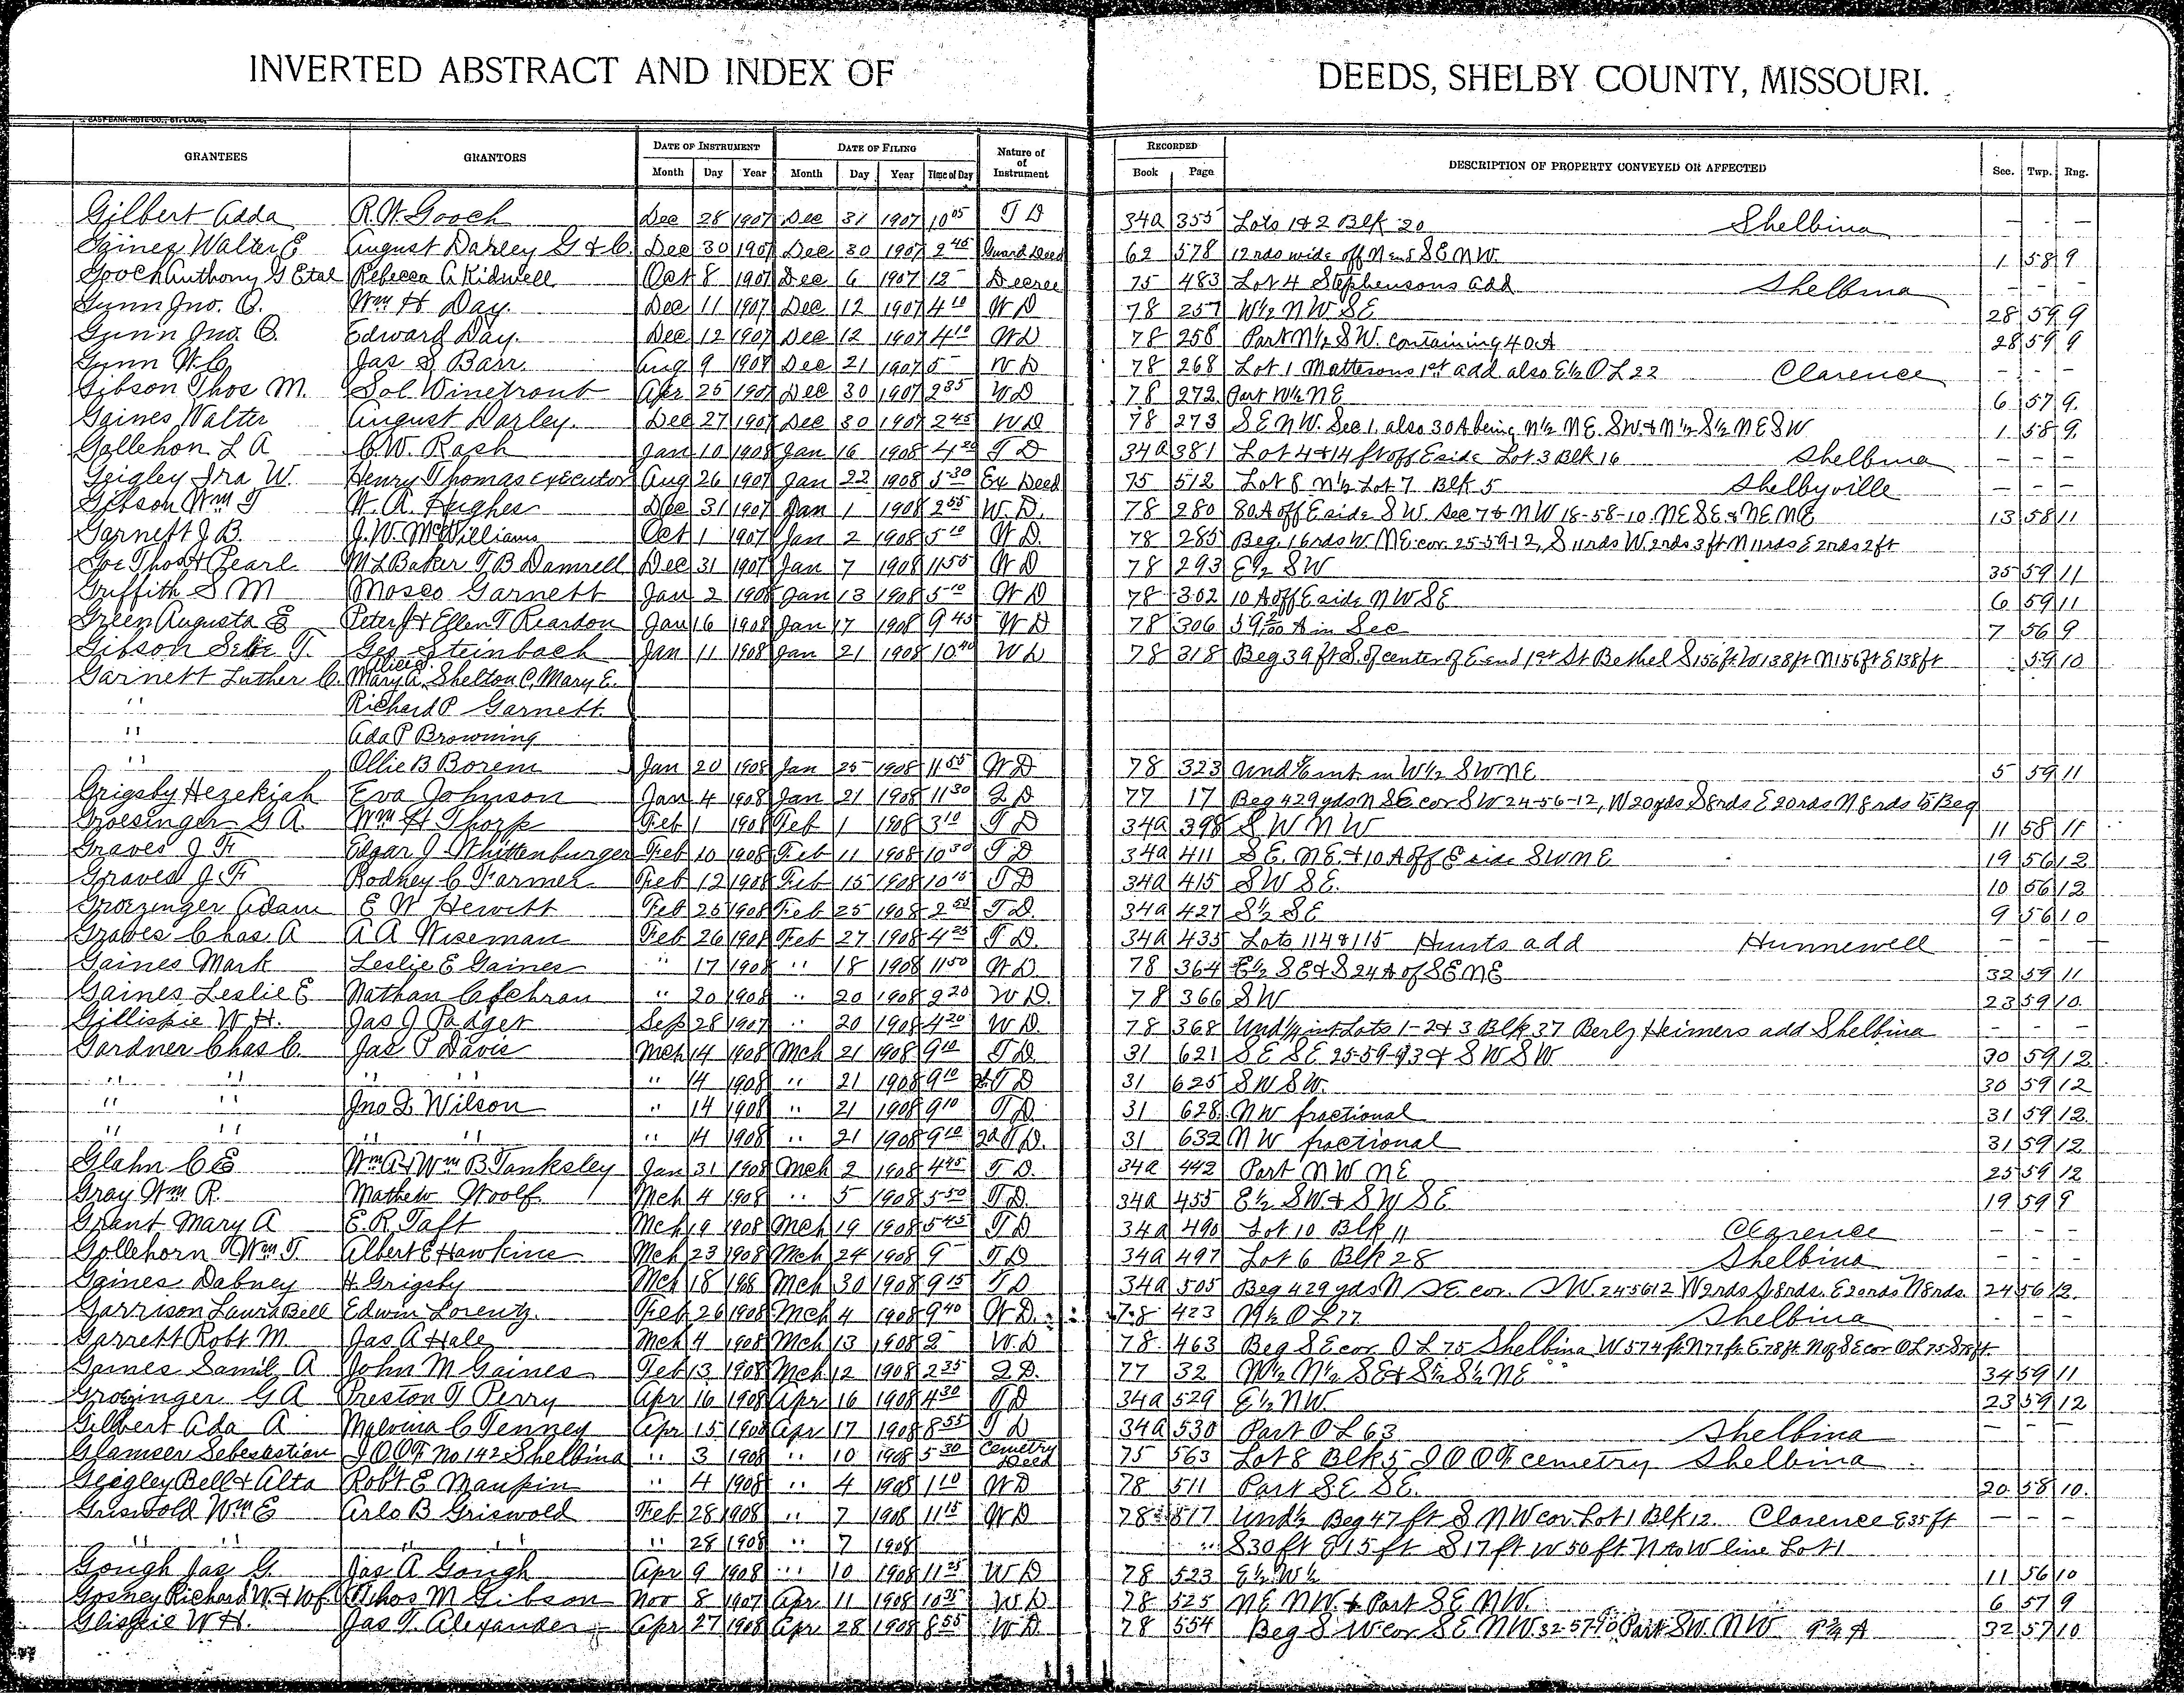 INVERTED ABSTRACT AND INDEX OF DEEDS, SHELBY COUNTY, MISSOURI.
GRANTEES GRANTORS DATE OF INSTRUMENT DATE OF FILING Nature of Instrument RECORDED DESCRIPTION OF PROPERTY CONVEYED OR AFFECTED Sec. Twp. Rng.
Month Day Year Month Day Year Time of Day Book Page
Gilbert Adda R.W. Gooch Dec 28 1907 Dec 31 1907 10 05 T D 34a 355 Lots 1 & 2 Blk 20 Shelbina – – –
Gaines Walter E August Darley G & C. Dec 30 1907 Dec 30 1907 2 45 Guard Deed 62 578 12 rds wide off N end SE NW 1 58 9
Gooch Anthony G Etal Rebecca A Kidwell Oct 8 1907 Dec 6 1907 12 – Decree 75 483 Lot 4 Stephensons add Shelbina – – –
Gunn Jno. O. Wm H Day. Dec 11 1907 Dec 12 1907 4 10 W D 78 257 W½ NW SE 28 59 9
Gunn Jno. O. Edward Day. Dec 12 1907 Dec 12 1907 4 10 W D 78 258 Part N½ SW. containing 40 A 28 59 9
Gunn W.C. Jas S Barr. Aug 9 1907 Dec 21 1907 5 – W D 78 268 Lot 1 Mattersons 1st add also E½ O L 22 Clarence – – –
Gibson Thos M. Sol Winetrout Apr 25 1907 Dec 30 1907 2 35 W D 78 272 Part W½ NE 6 57 9.
Gaines Walter August Darley. Dec 27 1907 Dec 30 1907 2 45 W D 78 273 SE NW. Sec 1. also 30 A being N½ NE. SW. & N½ S½ NE SW 1 58 9.
Gollehon L A C.W. Rash Jan 10 1908 Jan 16 1908 4 20 T D 34a 381 Lot 4 & 14 ft off E side Lot 3 Blk 16 Shelbina – – –
Geigley Ira W. Henry Thomas executor Aug 26 1907 Jan 22 1908 5 30 Ex Deed 75 512 Lot 8 N½ Lot 7 Blk 5 Shelbyville – – –
Gibson Wm T W. A. Hughes Dec 31 1907 Jan 1 1908 2 55 W. D. 78 280 80 A off E side SW. Sec 7 & NW 18-58-10. NE SE & NE NE 13 58 11
Garnett J B. J.W. McWilliams Oct 1 1907 Jan 2 1908 5 10 W D. 78 285 Beg. 16 rds W. NE cor. 25-59-12, S 11 rds W 2 rds 3 ft N 11 rds E 2 rds 2 ft
Goe Thos & Pearl M L Baker T B Damrell Dec 31 1907 Jan 7 1908 11 50 W D 78 293 E½ SW 35 59 11
Griffith S M Mosco Garnett Jan 2 1908 Jan 13 1908 5 10 W D 78 302 10 A off E side NW SE 6 59 11
Green Augusta E Peter J & Ellen T Reardon Jan 16 1908 Jan 17 1908 9 45 W D 78 306 A in Sec 7 56 9
Gibson T. Geo Steinbach Jan 11 1908 Jan 21 1908 10 40 W D 78 318 Beg 39 ft S. of center of E end 1st St Bethel S 156 ft. W 138 ft N 156 ft E 138 ft 59 10
Garnett Luther C. Alice Mary A. Shelton C. Mary E.
" Richard P Garnett.
" Ada P Browning
" Ollie B Borem Jan 20 1908 Jan 25 1908 11 55 W D 78 323 Und 1/6 int in W½ SW NE 5 59 11
Grigsby Hezekiah Eva Johnson Jan 4 1908 Jan 21 1908 11 30 Q D 77 17 Beg 429 yds N SE cor SW 24-56-12, W 20 yds S 8 rds E 20 rds N 8 rds to Beg
Groesinger G A. Wm H Thorp Feb 1 1908 Feb 1 1908 3 10 T D 34a 398 SW NW 11 58 11
Graves J F Edgar J Whittenburger Feb 10 1908 Feb 11 1908 10 30 T D 34a 411 SE. NE. & 10 A off E side SW NE 19 56 12
Graves J F Rodney C Farmer Feb 12 1908 Feb 15 1908 10 15 T D 34a 415 SW SE. 10 56 12
Groezinger Adam E W Hewitt Feb 25 1908 Feb 25 1908 T D. 34a 427 S½ SE 9 56 10
Graves Chas A A A Wiseman Feb 26 1908 Feb 27 1908 4 25 T D. 34a 435 Lots 114 & 115 Hunts add Hunnewell – – –
Gaines Mark Leslie E Gaines " 17 1908 " 18 1908 11 50 W D. 78 364 E½ SE & S 24 A of SE NE 32 59 11
Gaines Leslie E Nathan Cochran " 20 1908 " 20 1908 2 20 W D. 78 366 SW 23 59 10.
Gillispie W H. Jas J Padget Sep 28 1907 " 20 1908 4 20 W D. 78 368 Und ¼ int Lots 1-2 & 3 Blk 37 Berlz Heimers add Shelbina – – –
Gardner Chas C. Jas P Davis Mch 14 1908 Mch 21 1908 9 10 T D 31 621 SE SE 25-59-13 & SW SW 30 59 12.
" " " " " 14 1908 " 21 1908 9 10 2d T D 31 625 SW SW. 30 59 12
" " Jno Q Wilson " 14 1908 " 21 1908 9 10 T D. 31 628 NW fractional 31 59 12.
" " " " " 14 1908 " 21 1908 9 10 2d T D. 31 632 NW fractional 31 59 12
Glahn C E Wm A & Wm B Tanksley Jan 31 1908 Mch 2 1908 4 45 T D. 34a 442 Part NW NE 25 59 12
Gray Wm R. Mathew Woolf. Mch 4 1908 " 5 1908 5 50 T D. 34a 455 E½ SW. & SW SE 19 59 9
Grant Mary A E. R. Taft Mch 19 1908 Mch 19 1908 5 45 T D 34a 490 Lot 10 Blk 11 Clarence – – –
Gollehorn Wm T. Albert E Hawkins Mch 23 1908 Mch 24 1908 9 – T D 34a 497 Lot 6 Blk 28 Shelbina – – –
Gaines Dabney H Grigsby Mch 18 198 Mch 30 1908 9 15 T D 34a 505 Beg 429 yds N SE cor. SW. 245612 W 2 rds S 8 rds. E 20 rds N 8 rds. 24 56 12.
Garrison Laura Bell Edwin Lorentz. Feb 26 1908 Mch 4 1908 9 40 W D. 78 423 N½ O L 27 Shelbina – – –
Garrett Robt M. Jas A Hale Mch 4 1908 Mch 13 1908 2 – W D 78 463 Beg SE cor O L 75 Shelbina W 574 ft. N 77 ft. E 78 ft. N of SE cor O L 75 S 78 ft
Gaines Saml A John M Gaines Feb 13 1908 Mch 12 1908 2 35 Q D. 77 32 N½ N½ SE & S½ S½ NE 34 59 11
Groezinger G A Preston T Perry Apr 16 1908 Apr 16 1908 4 30 T D 34a 529 E½ NW. 23 59 12
Gilbert Ada A Malvina C Tenney Apr 15 1908 Apr 17 1908 8 55 T D 34a 530 Part O L 63 Shelbina – – –
Glamser Sebestian I O O F No 142 Shelbina " 3 1908 " 10 1908 5 30 Cemetry Deed 75 563 Lot 8 Blk 5 I O O F cemetry Shelbina
Geigley Bell & Alta Robt E Maupin " 4 1908 " 4 1908 1 10 W D 78 511 Part SE SE. 20 58 10.
Griswold Wm E Arlo B Griswold Feb 28 1908 " 7 1908 11 15 W D 78 517 Und ½ Beg 47 ft S NW cor. Lot 1 Blk 12. Clarence E 35 ft – – –
" " " " " 28 1908 " 7 1908 " S 30 ft E 15 ft S 17 ft W 50 ft N to W line Lot 1
Gough Jas G. Jas A Gough Apr 9 1908 " 10 1908 11 25 W D 78 523 E½ W½ 11 56 10
Gosney Richard W. & Wf. Thos M Gibson Nov 8 1907 Apr 11 1908 10 35 W D 78 525 NE NW. & Part SE NW. 6 57 9
Glispie W H. Jas T. Alexander Apr 27 1908 Apr 28 1908 8 55 W D. 78 554 Beg SW cor SE NW 32-57-10 Part SW. NW. 9¾ A 32 57 10